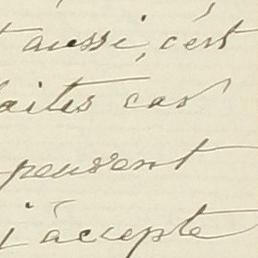 aussi, c'est
faites cas
peuvent
j'accepte